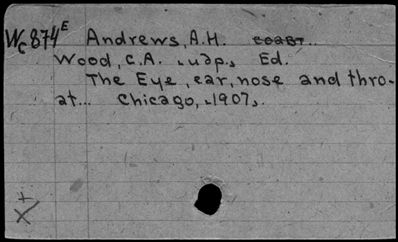 Wc874E Andrews, A.H.
Wood, C.A. Ed.
The Eye, ear, nose and thro-
at... Chicago, 1907.